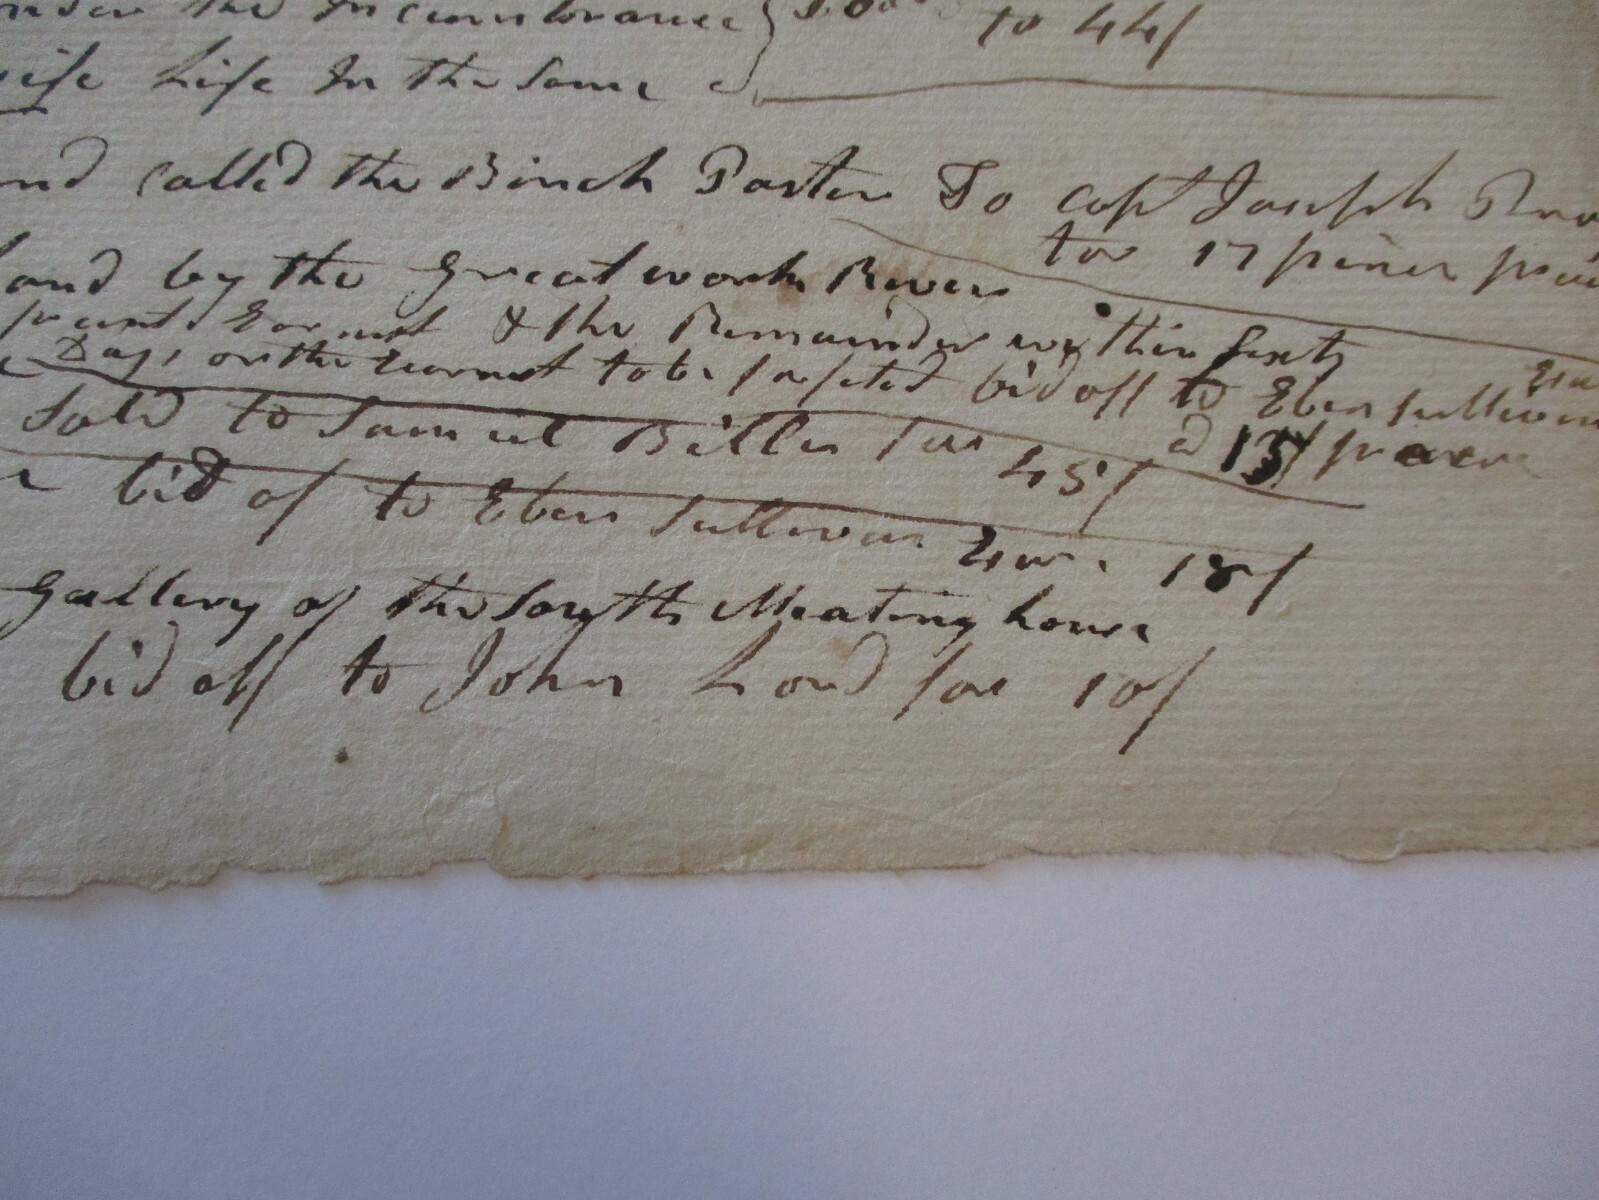 the Incumbrance
to 44/
Life In the Same
called the Birch Paster To capt Joseph
for 17 pr
Land by the Great work River
Earnest & the Remainder within Sixty
Days, or the Earnest to be forfeted bid off to Eben Sullivan
Sold to Samuel for 45/ a 15/ pr acre
bid of to Eben Sullivan 18/
Gallery of the South Meating house
bid off to John Lord for 10/